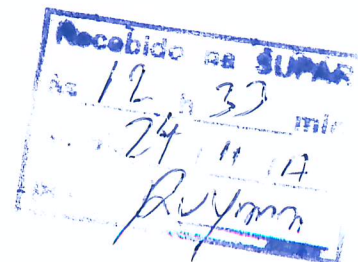 Recebido na SUPAR
às 12 h 33 min
24 / 11 / 17